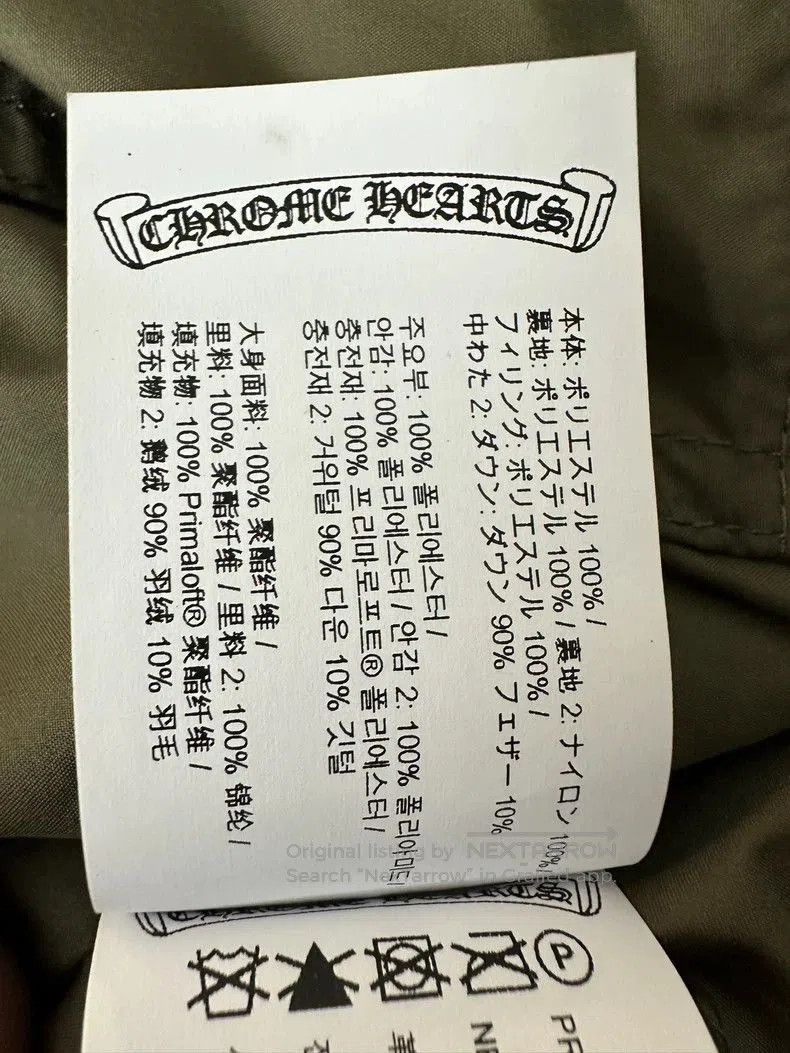 CHROME HEARTS
本体: ポリエステル 100% /
裏地: ポリエステル 100% / 裏地 2: ナイロン 100%
フィリング: ポリエステル 100% /
中わた 2: ダウン: ダウン 90% フェザー 10%
주요부: 100% 폴리에스터 /
안감: 100% 폴리에스터 / 안감 2: 100% 폴리아미드
충전재: 100% 프리마로프트® 폴리에스터 /
충전재 2: 거위털 90% 다운 10% 깃털
大身面料: 100% 聚酯纤维 /
里料: 100% 聚酯纤维 / 里料 2: 100% 锦纶 /
填充物: 100% Primaloft® 聚酯纤维 /
填充物 2: 鹅绒 90% 羽绒 10% 羽毛
Original listing by NEXTARROW
Search "Nextarrow" in Grailed app
CHROME HEARTS
P